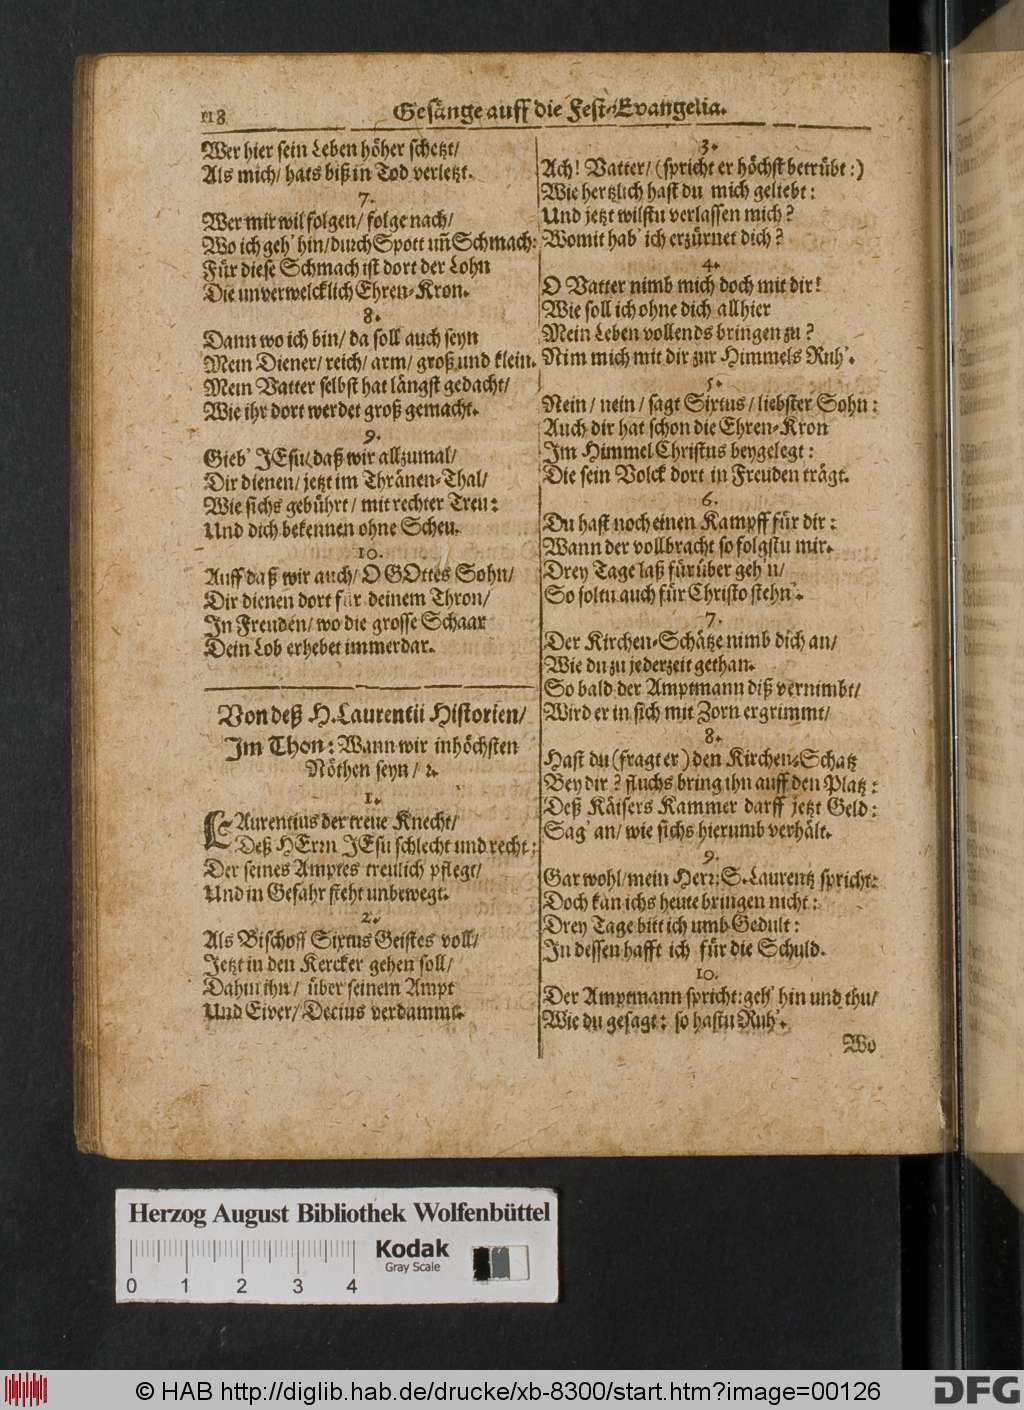 118
Gesänge auff die Fest-Evangelia.
Wer hier sein Leben höher schetzt/
Als mich/ hats biß in Tod verletzt.
7.
Wer mir wil folgen/ folge nach/
Wo ich geh' hin/ durch Spott uñ Schmach:
Für diese Schmach ist dort der Lohn
Die unverwelcklich Ehren-Kron.
8.
Dann wo ich bin/ da soll auch seyn
Mein Diener/ reich/ arm/ groß und klein.
Mein Vatter selbst hat längst gedacht/
Wie ihr dort werdet groß gemacht.
9.
Gieb' JEsu/ daß wir allzumal/
Dir dienen/ jetzt im Thränen-Thal/
Wie sichs gebührt/ mit rechter Treu:
Und dich bekennen ohne Scheu.
10.
Auff daß wir auch/ O GOttes Sohn/
Dir dienen dort für deinem Thron/
In Freuden/ wo die grosse Schaar
Dein Lob erhebet immerdar.
Von deß H. Laurentii Historien/
Im Thon: Wann wir in höchsten
Nöthen seyn/ ꝛc.
1.
LAurentius der treue Knecht/
Deß HErrn JEsu schlecht und recht:
Der seines Amptes treulich pflegt/
Und in Gefahr steht unbewegt.
2.
Als Bischoff Sixtus Geistes voll/
Jetzt in den Kercker gehen soll/
Dahin ihn/ über seinem Ampt
Und Eiver/ Decius verdammt.
3.
Ach! Vatter/ (spricht er höchst betrübt:)
Wie hertzlich hast du mich geliebt:
Und jetzt wilstu verlassen mich?
Womit hab' ich erzürnet dich?
4.
O Vatter nimb mich doch mit dir!
Wie soll ich ohne dich allhier
Mein Leben vollends bringen zu?
Nim mich mit dir zur Himmels Ruh'.
5.
Nein/ nein/ sagt Sixtus/ liebster Sohn:
Auch dir hat schon die Ehren-Kron
Im Himmel Christus beygelegt:
Die sein Volck dort in Freuden trägt.
6.
Du hast noch einen Kampff für dir:
Wann der vollbracht so folgstu mir.
Drey Tage laß fürüber geh'n/
So soltu auch für Christo stehn'.
7.
Der Kirchen-Schätze nimb dich an/
Wie du zu jederzeit gethan.
So bald der Amptmann diß vernimbt/
Wird er in sich mit Zorn ergrimmt/
8.
Hast du (fragt er) den Kirchen-Schatz
Bey dir? fluchs bring ihn auff den Platz:
Deß Käisers Kammer darff jetzt Geld:
Sag' an/ wie sichs hierumb verhält.
9.
Gar wohl/ mein Herr; S. Laurentz spricht:
Doch kan ichs heute bringen nicht:
Drey Tage bitt ich umb Gedult:
In dessen hafft ich für die Schuld.
10.
Der Amptmann spricht: geh' hin und thu/
Wie du gesagt: so hastu Ruh'.
Wo
Herzog August Bibliothek Wolfenbüttel
Kodak
Gray Scale
0 1 2 3 4
© HAB http://diglib.hab.de/drucke/xb-8300/start.htm?image=00126
DFG